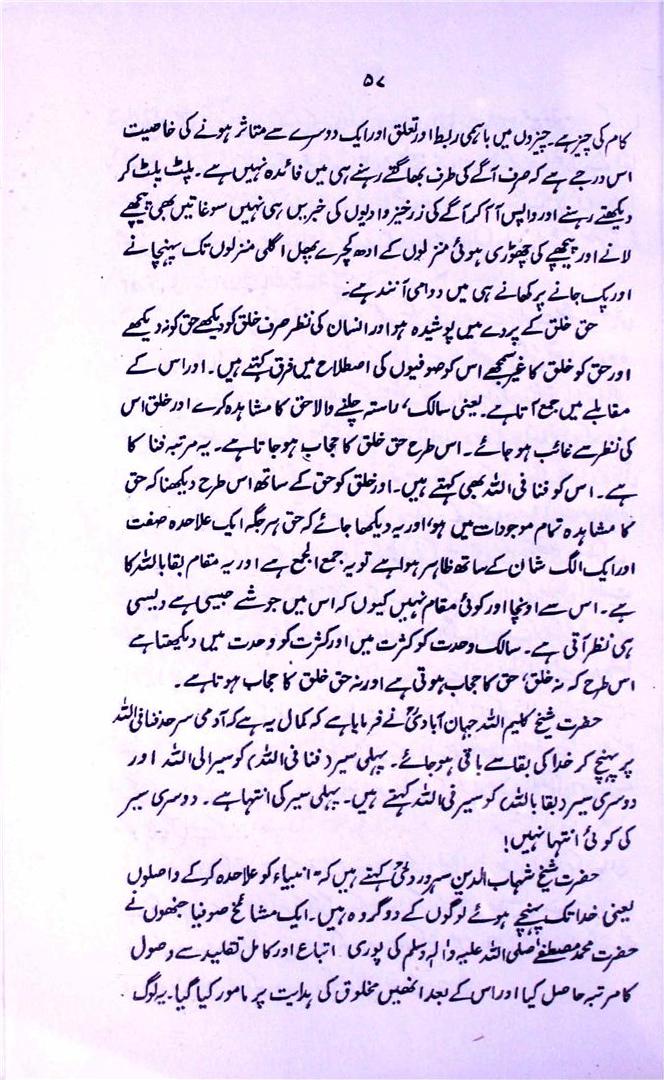 ۵۷
کام کی چیز ہے۔ چیزوں میں باہمی ربط اور تعلق اور ایک دوسرے سے متاثر ہونے کی خاصیت
اس درجے ہے کہ صرف آگے کی طرف بھاگتے رہنے ہی میں فائدہ نہیں ہے۔ پلٹ پلٹ کر
دیکھتے رہنے اور واپس آ آکر آگے کی زرخیز وادیوں کی خبریں ہی نہیں سوغاتیں بھی پیچھے
لانے اور پیچھے کی چھوڑی ہوئی منزلوں کے ادھ کچرے پھل اگلی منزلوں تک پہنچانے
اور پک جانے پر کھانے ہی میں دوامی آنند ہے۔
حق خلق کے پردے میں پوشیدہ ہو اور انسان کی نظر صرف خلق کو دیکھے حق کو نہ دیکھے
اور حق کو خلق کا غیر سمجھے اس کو صوفیوں کی اصطلاح میں فرق کہتے ہیں۔ اور اس کے
مقابلے میں جمع آتا ہے۔ یعنی سالک، راستہ چلنے والا حق کا مشاہدہ کرے اور خلق اس
کی نظر سے غائب ہو جائے۔ اس طرح حق خلق کا حجاب ہو جاتا ہے۔ یہ مرتبہ فنا کا
ہے۔ اس کو فنا فی اللہ بھی کہتے ہیں۔ اور خلق کو حق کے ساتھ اس طرح دیکھنا کہ حق
کا مشاہدہ تمام موجودات میں ہو، اور یہ دیکھا جائے کہ حق ہر جگہ ایک علاحدہ صفت
اور ایک الگ شان کے ساتھ ظاہر ہوا ہے تو یہ جمع الجمع ہے اور یہ مقام بقا باللہ کا
ہے۔ اس سے اونچا اور کوئی مقام نہیں کیوں کہ اس میں جو شے جیسی ہے ویسی
ہی نظر آتی ہے۔ سالک وحدت کو کثرت میں اور کثرت کو وحدت میں دیکھتا ہے
اس طرح کہ نہ خلق، حق کا حجاب ہوتی ہے اور نہ حق خلق کا حجاب ہوتا ہے۔
حضرت شیخ کلیم اللہ جہان آبادیؒ نے فرمایا ہے کہ کمال یہ ہے کہ آدمی سرحد فنا فی اللہ
پر پہنچ کر خدا کی بقا سے باقی ہو جائے۔ پہلی سیر (فنا فی اللہ) کو سیر الی اللہ اور
دوسری سیر (بقا باللہ) کو سیر فی اللہ کہتے ہیں۔ پہلی سیر کی انتہا ہے۔ دوسری سیر
کی کوئی انتہا نہیں!
حضرت شیخ شہاب الدین سہروردیؒ کہتے ہیں کہ "انبیاء کو علاحدہ کر کے واصلوں
یعنی خدا تک پہنچے ہوئے لوگوں کے دو گروہ ہیں۔ ایک مشائخ صوفیا جنھوں نے
حضرت محمد مصطفےٰ صلی اللہ علیہ واٰلہ وسلم کی پوری اتباع اور کامل تقلید سے وصول
کا مرتبہ حاصل کیا اور اس کے بعد انھیں مخلوق کی ہدایت پر مامور کیا گیا۔ یہ لوگ